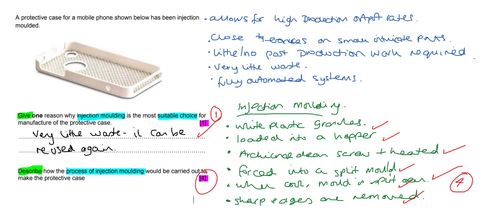 A protective case for a mobile phone shown below has been injection
moulded.
• allows for high production output rates.
• Close tolerances on small intricate parts.
• little/no post production work required
• Very little waste.
• fully automated systems.
Give one reason why injection moulding is the most suitable choice for
manufacture of the protective case.
[1]
1
Very little waste - it can be
reused again.
Describe how the process of injection moulding would be carried out to
make the protective case
[4]
Injection moulding.
• white plastic granules.
• loaded into a hopper
• Archimedean screw + heated
• forced into a split mould
• when cool, mould is split open.
• sharp edges are removed.
4